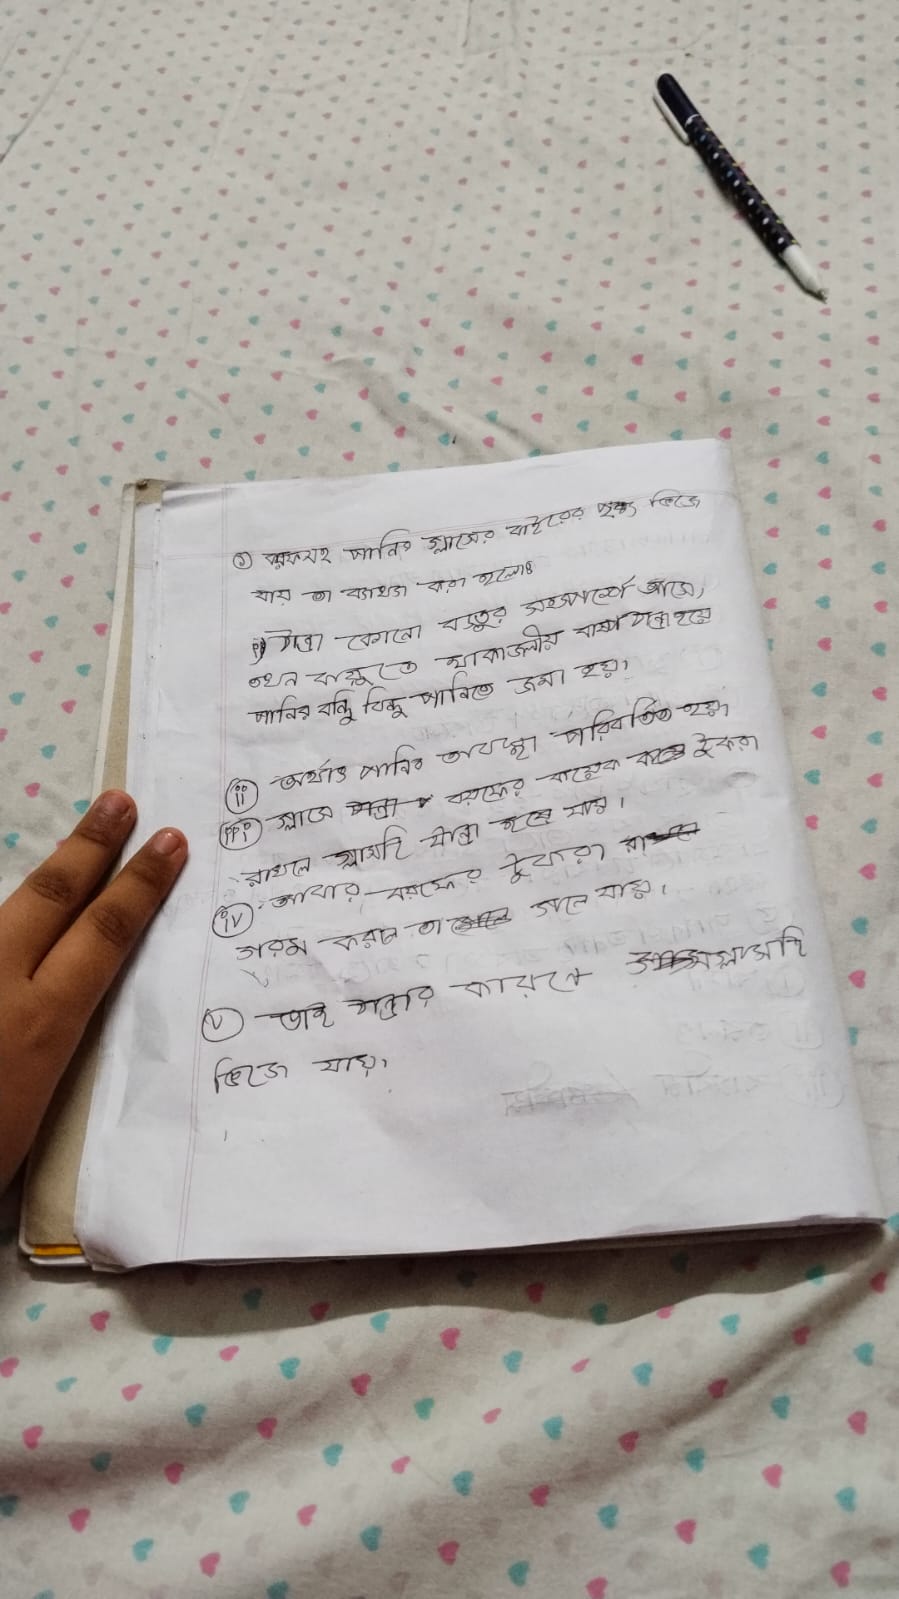 ① বরফসহ পানির গ্লাসের বাইরের পৃষ্ঠ ভিজে
যায় তা ব্যাখ্যা করা হলোঃ
i) ঠান্ডা কোনো বস্তুর সংস্পর্শে আসে,
তখন বায়ুতে থাকা জলীয় বাষ্প ঠান্ডা হয়ে
পানির বিন্দু বিন্দু পানিতে জমা হয়।
ii) অর্থাৎ পানির অবস্থা পরিবর্তিত হয়।
iii) গ্লাসে বরফের কয়েক টুকরা
রাখলে গ্লাসটি ঠান্ডা হয়ে যায়।
iv) আবার বরফের টুকরা
গরম করলে তা গলে যায়।
v) তাই ঠান্ডার কারণে গ্লাসটি
ভিজে যায়।